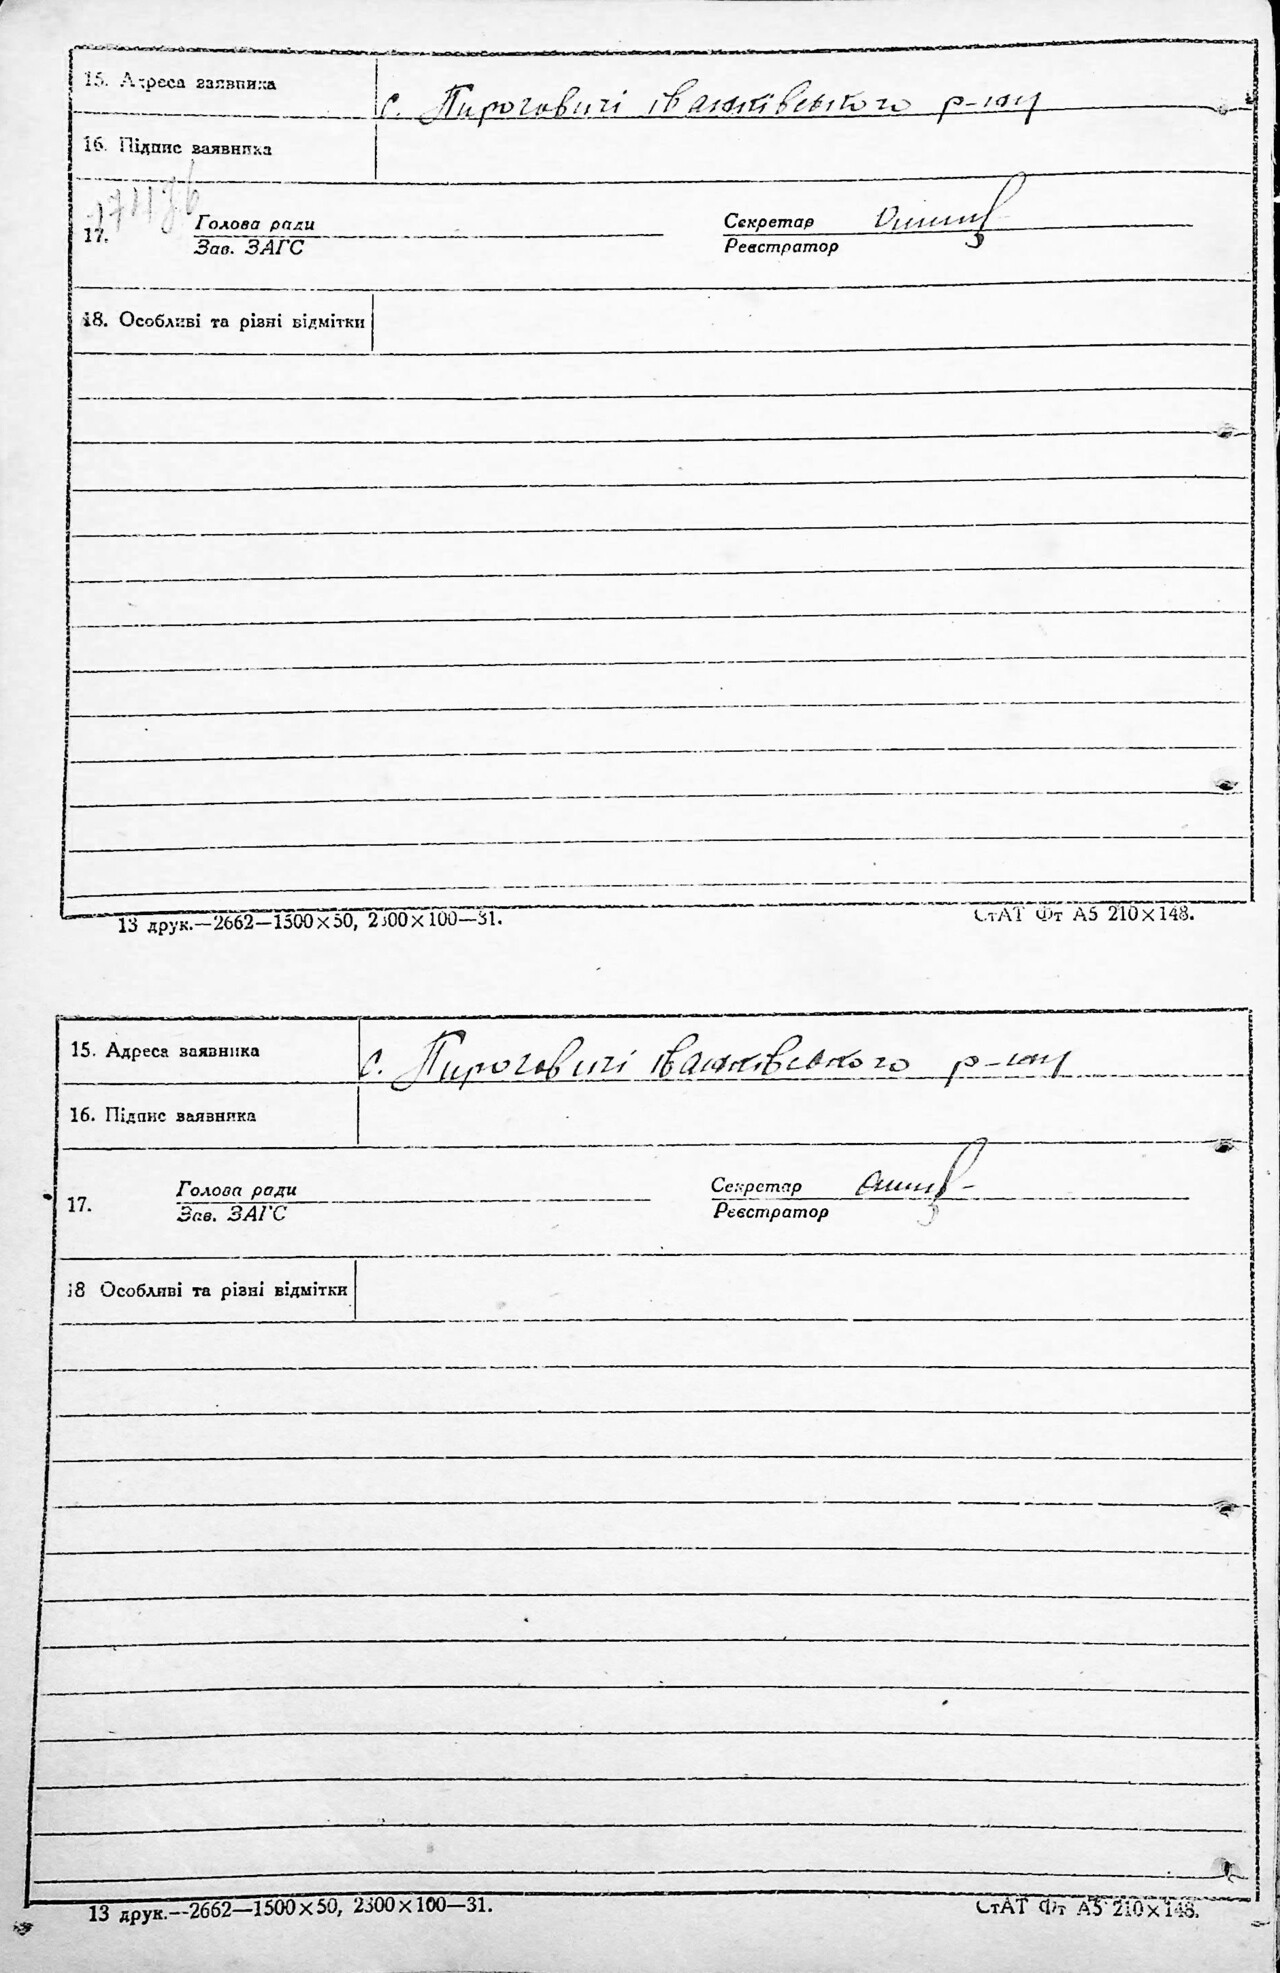 15. Адреса заявника
с. Пироговичі Іванківського р-ну
16. Підпис заявника
17. Голова ради
Зав. ЗАГС
Секретар
Реєстратор
18. Особливі та різні відмітки
13 друк.—2662—1500×50, 2300×100—31.
СтАТ Фт А5 210×148.
15. Адреса заявника
с. Пироговичі Іванківського р-ну
16. Підпис заявника
17. Голова ради
Зав. ЗАГС
Секретар
Реєстратор
18 Особливі та різні відмітки
13 друк.—2662—1500×50, 2300×100—31.
СтАТ Фт А5 210×148.